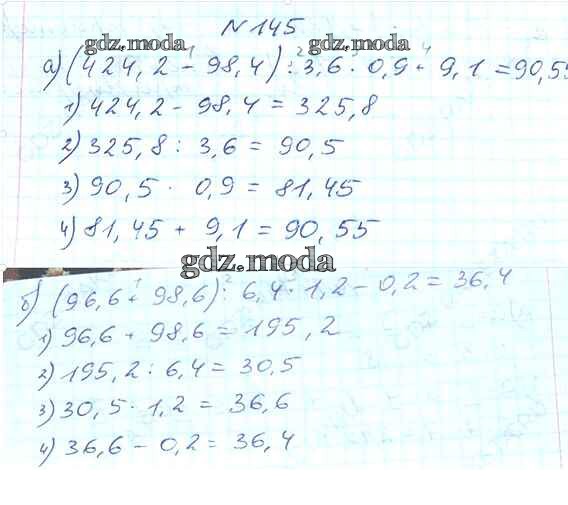 N 145
gdz.moda gdz.moda
1 2 3 4
а) (424,2 - 98,4) : 3,6 · 0,9 + 9,1 = 90,55
1) 424,2 - 98,4 = 325,8
2) 325,8 : 3,6 = 90,5
3) 90,5 · 0,9 = 81,45
4) 81,45 + 9,1 = 90,55
gdz.moda
1 2
б) (96,6 + 98,6) : 6,4 · 1,2 - 0,2 = 36,4
1) 96,6 + 98,6 = 195,2
2) 195,2 : 6,4 = 30,5
3) 30,5 · 1,2 = 36,6
4) 36,6 - 0,2 = 36,4